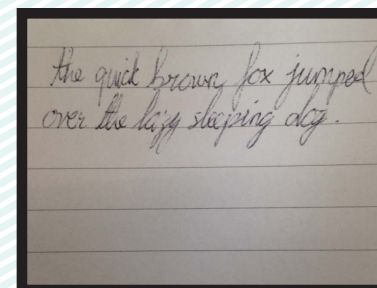 the quick brown fox jumped
over the lazy sleeping dog.